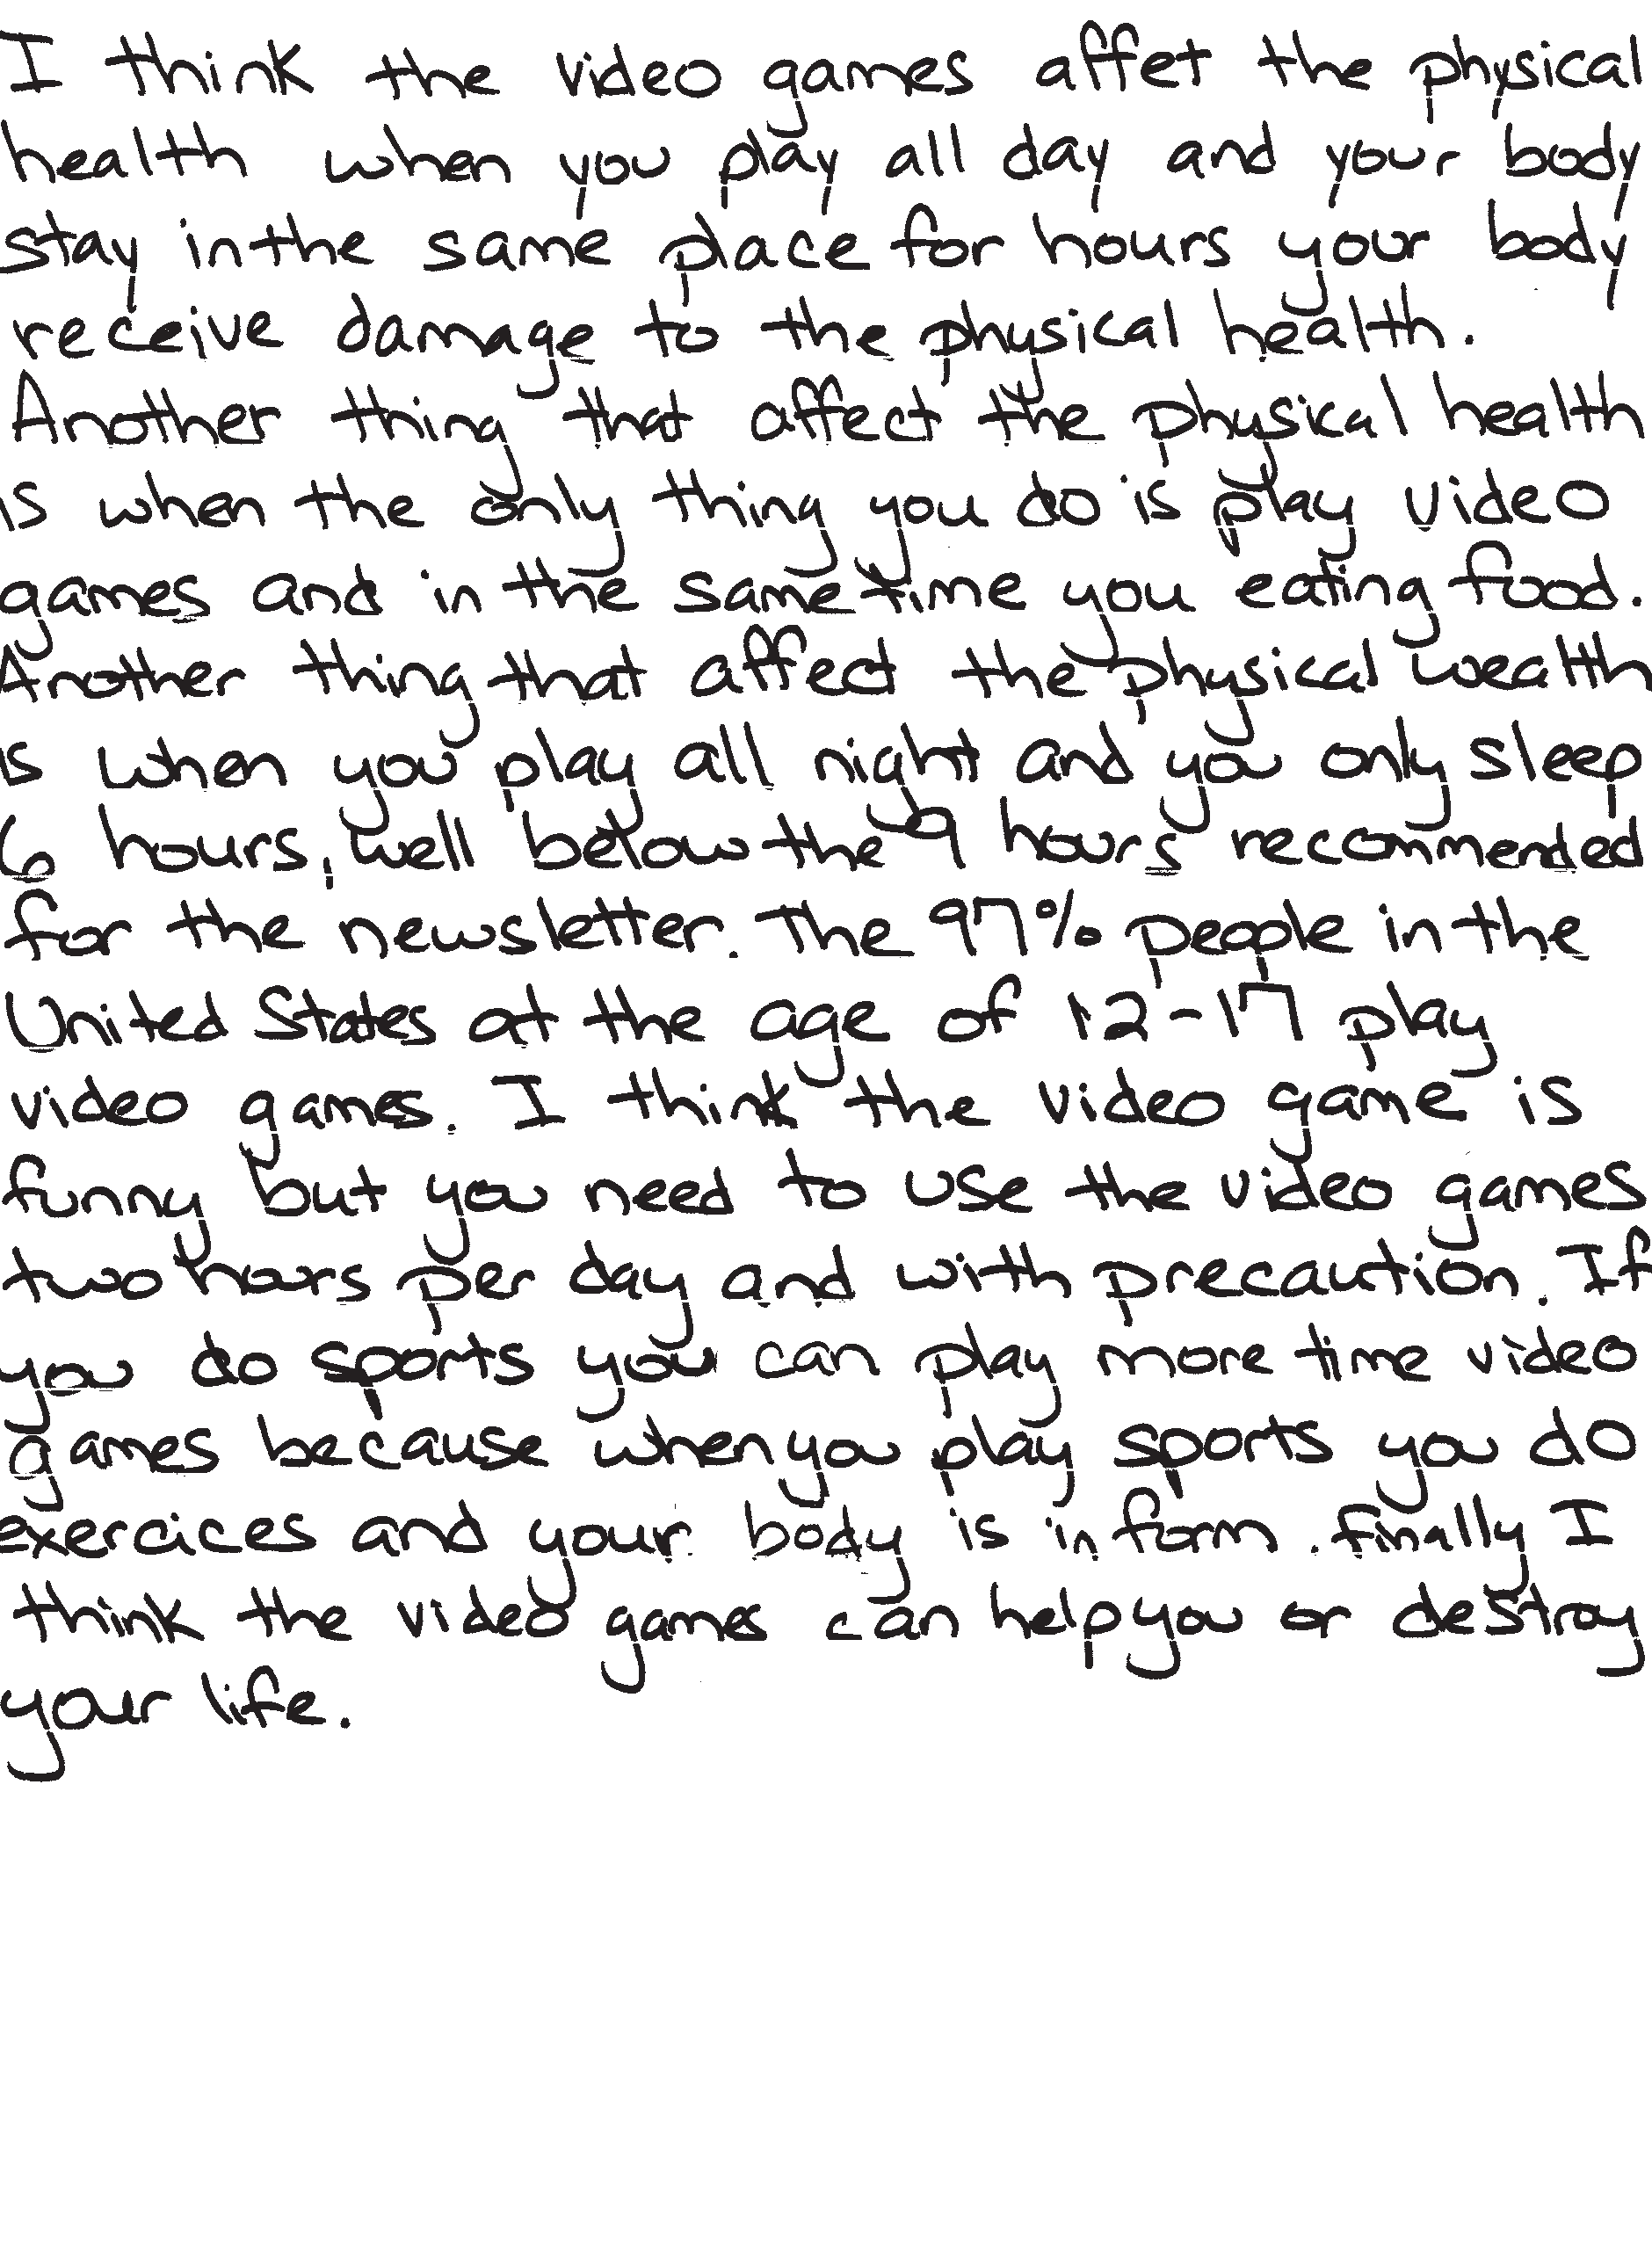 I think the video games affet the physical
health when you play all day and your body
stay in the same place for hours your body
receive damage to the physical health.
Another thing that affect the physical health
is when the only thing you do is play video
games and in the same time you eating food.
Another thing that affect the physical wealth
is when you play all night and you only sleep
6 hours, well below the 9 hours recommended
for the newsletter. The 97% people in the
United States at the age of 12-17 play
video games. I think the video game is
funny but you need to use the video games
two hours per day and with precaution. If
you do sports you can play more time video
games because when you play sports you do
exercices and your body is in form. finally I
think the video games can help you or destroy
your life.